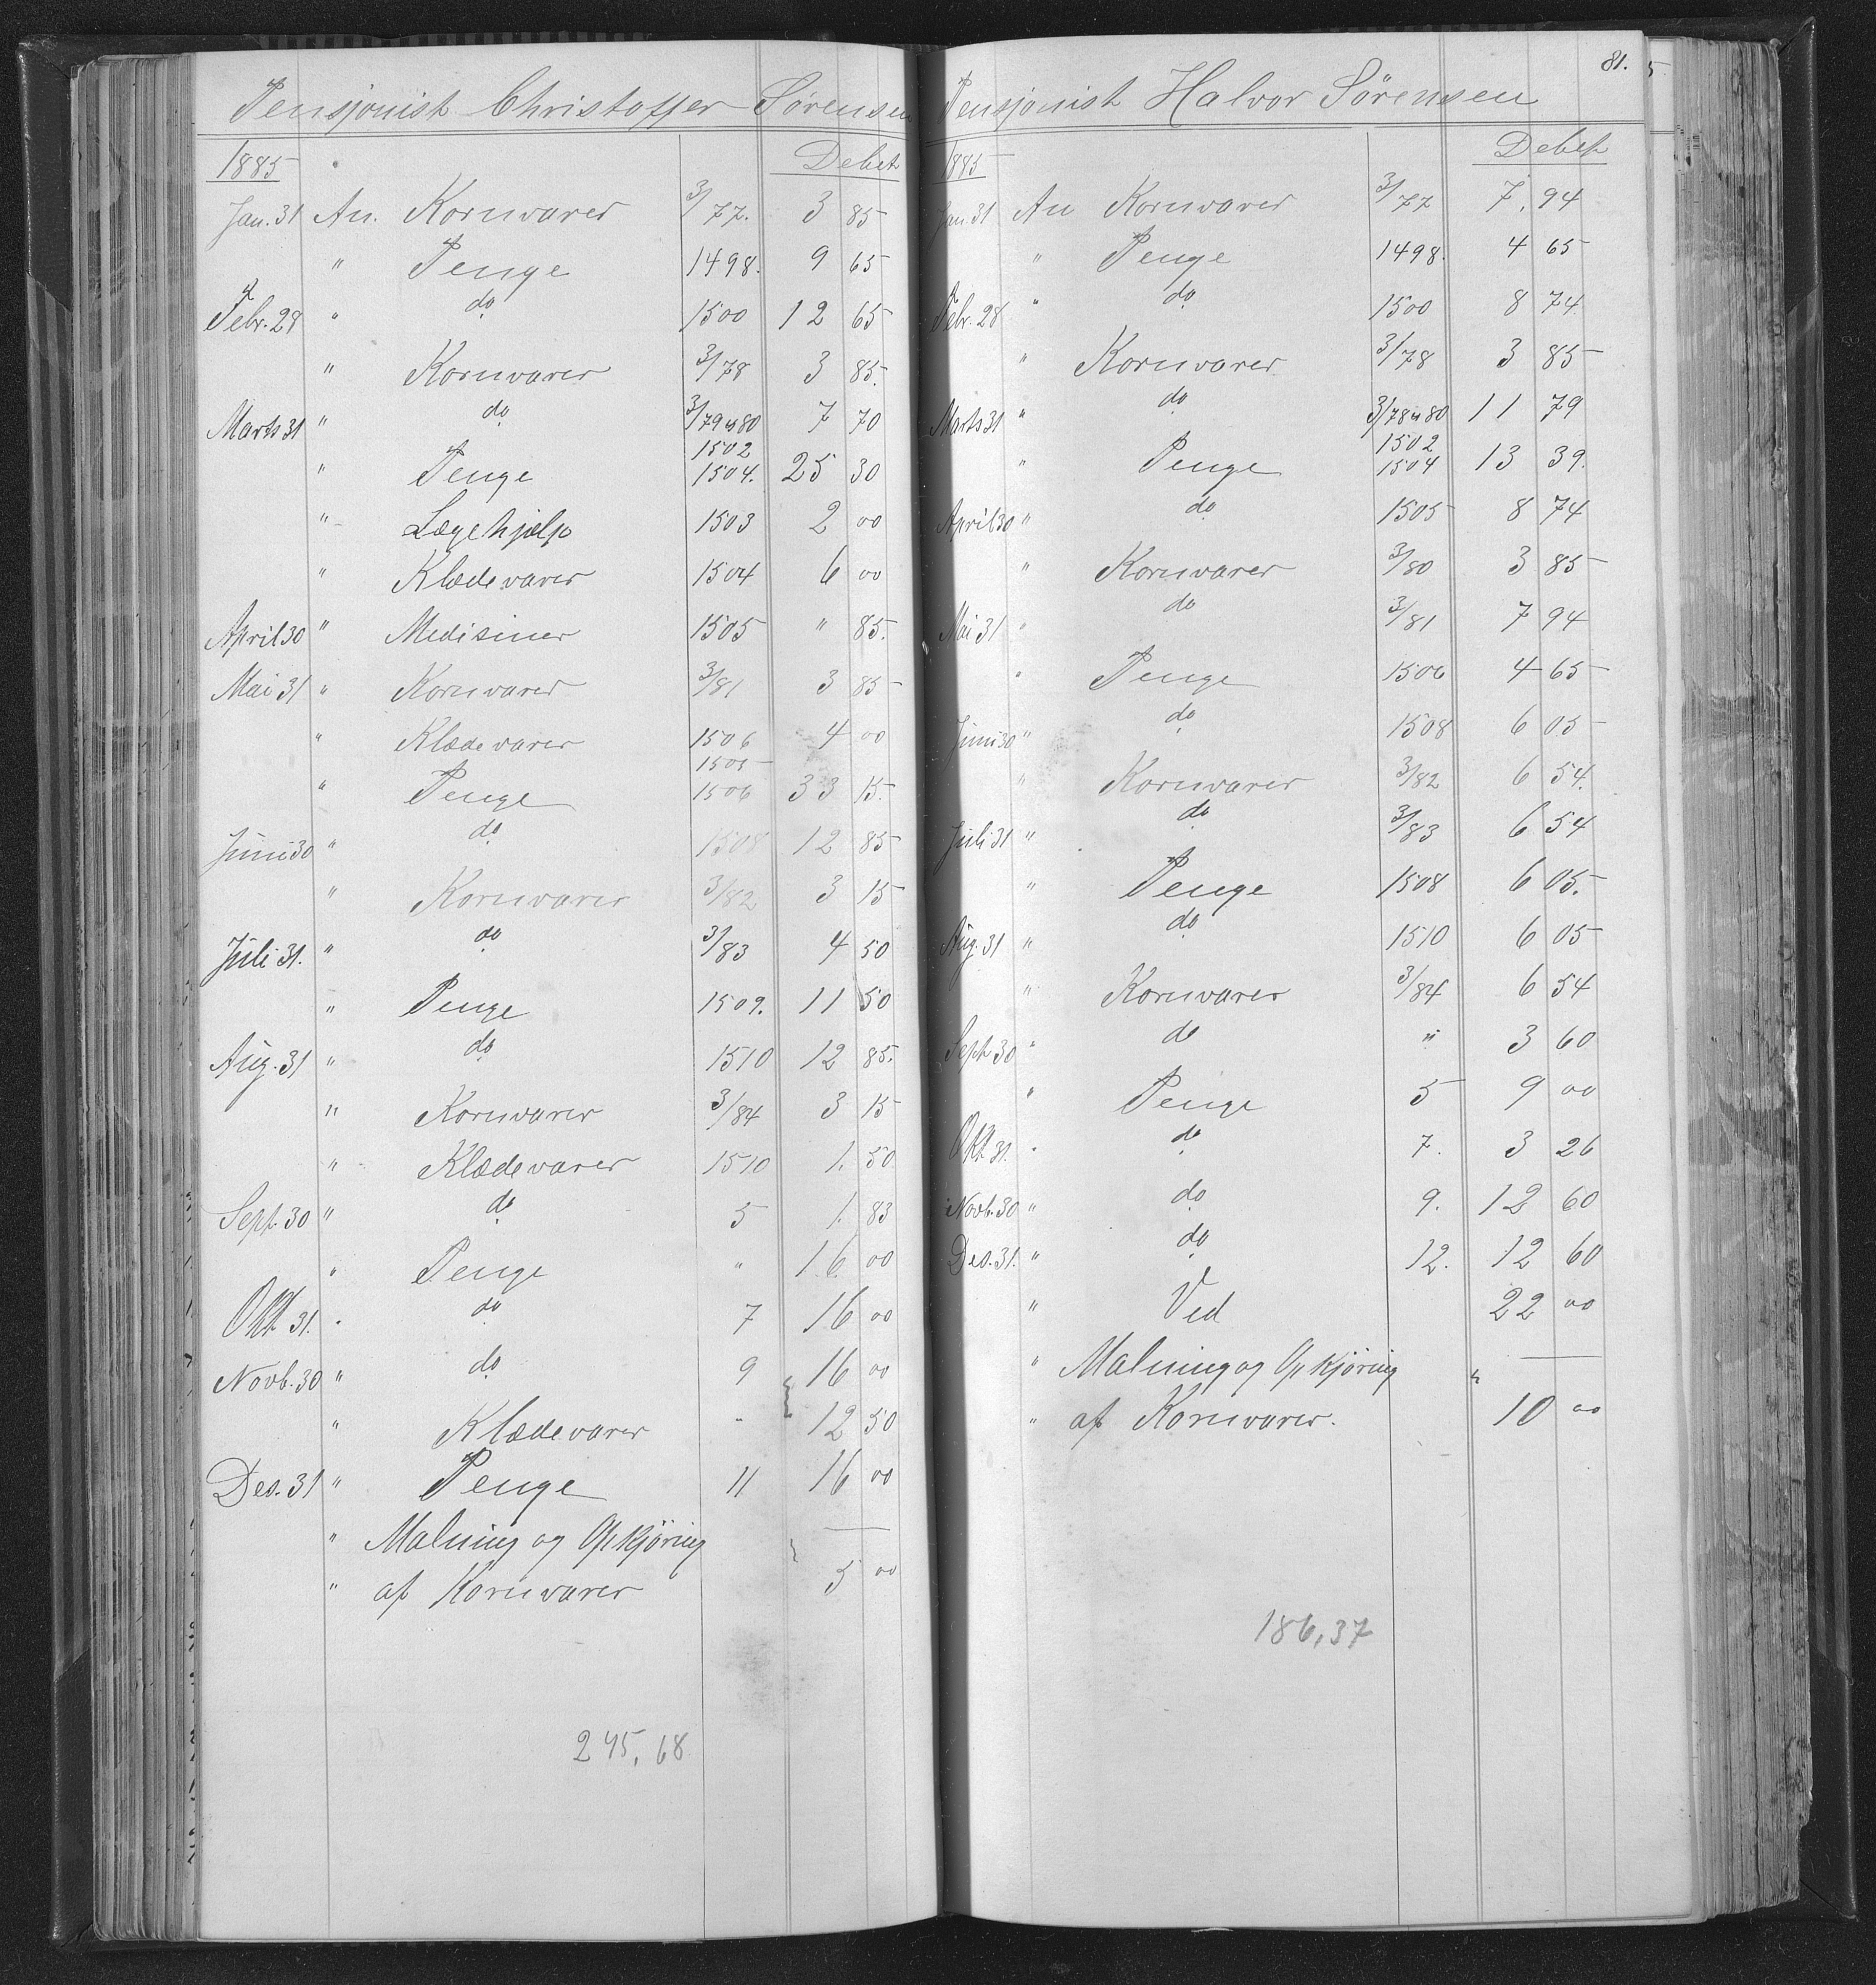 Pensjonist Christoffer Sørensen
1885 Debet
Jan. 31 An. Kornvarer 3/77. 3 85
" Penge 1498. 9 65
Febr. 28 " do 1500 12 65
" Kornvarer 3/78 3 85.
Marts 31 " do 3/79 & 80 7 70
1502
" Penge 1504. 25 30
" Lægehjælp 1503 2 00
" Klædevarer 1504 6 00
April 30 " Medisiner 1505 " 85.
Mai 31 " Kornvarer 3/81 3 85
" Klædevarer 1506 4 00
1505
" Penge 1506 33 15.
Juni 30 " do 1508 12 85
" Kornvarer 3/82 3 15
Juli 31. " do 3/83 4 50
" Penge 1509. 11 50
Aug. 31 " do 1510 12 85.
" Kornvarer 3/84 3 15
" Klædevarer 1510 1. 50
Sept. 30 " do 5 1. 83
" Penge " 16 00
Okt 31. " do 7 16 00
Novb. 30 " do 9 16 00
" Klædevarer " 12 50
Des. 31 " Penge 11 16 00
" Malning og Opkjøring
" af Kornvarer 5 00
245,68
81.
5
Pensjonist Halvor Sørensen
1885 Debet
Jan. 31 An Kornvarer 3/77 7,94
" Penge 1498. 4 65
Febr. 28 " do 1500 8 74
" Kornvarer 3/78 3 85
Marts 31 " do 3/78 & 80 11 79
1502
" Penge 1504 13 39.
April 30 " do 1505 8 74
" Kornvarer 3/80 3 85
Mai 31 " do 3/81 7 94
" Penge 1506 4 65
Juni 30 " do 1508 6 05
" Kornvarer 3/82 6 54.
Juli 31 " do 3/83 6 54
" Penge 1508 6 05.
Aug. 31 " do 1510 6 05
" Kornvarer 3/84 6 54
Sept 30 " do " 3 60
" Penge 5 9 00
Okt 31. " do 7. 3 26
Novb. 30 " do 9. 12 60
Des. 31. " do 12. 12 60
" Ved 22 00
" Malning og Opkjøring "
" af Kornvarer. 10 00
186,37